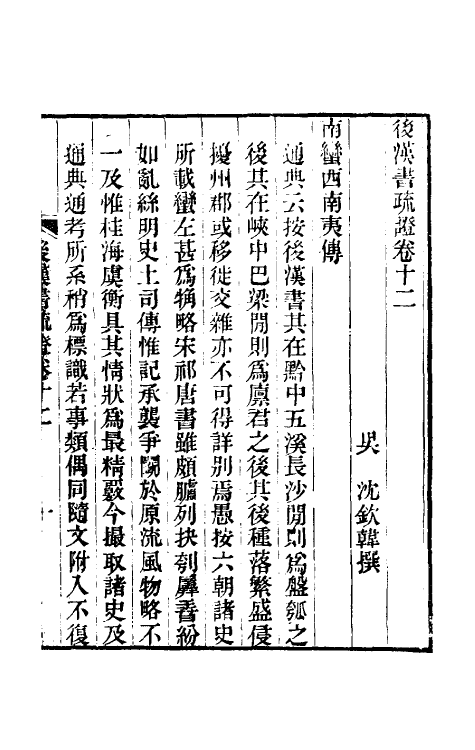 後漢書疏證卷十二
吳　沈欽韓撰
南蠻西南夷傳
通典云按後漢書其在黔中五溪長沙閒則爲盤瓠之
後其在峽中巴梁閒則爲廩君之後其後種落繁盛侵
擾州郡或移徙交雜亦不可得詳别焉愚按六朝諸史
所載蠻左甚爲觕略宋祁唐書雖頗臚列抉刳羼香紛
如亂絲明史土司傳惟記承襲爭鬭於原流風物略不
一及惟桂海虞衡具其情狀爲最精覈今撮取諸史及
通典通考所系稍爲標識若事類偶同隨文附入不復
後漢書疏證卷十二